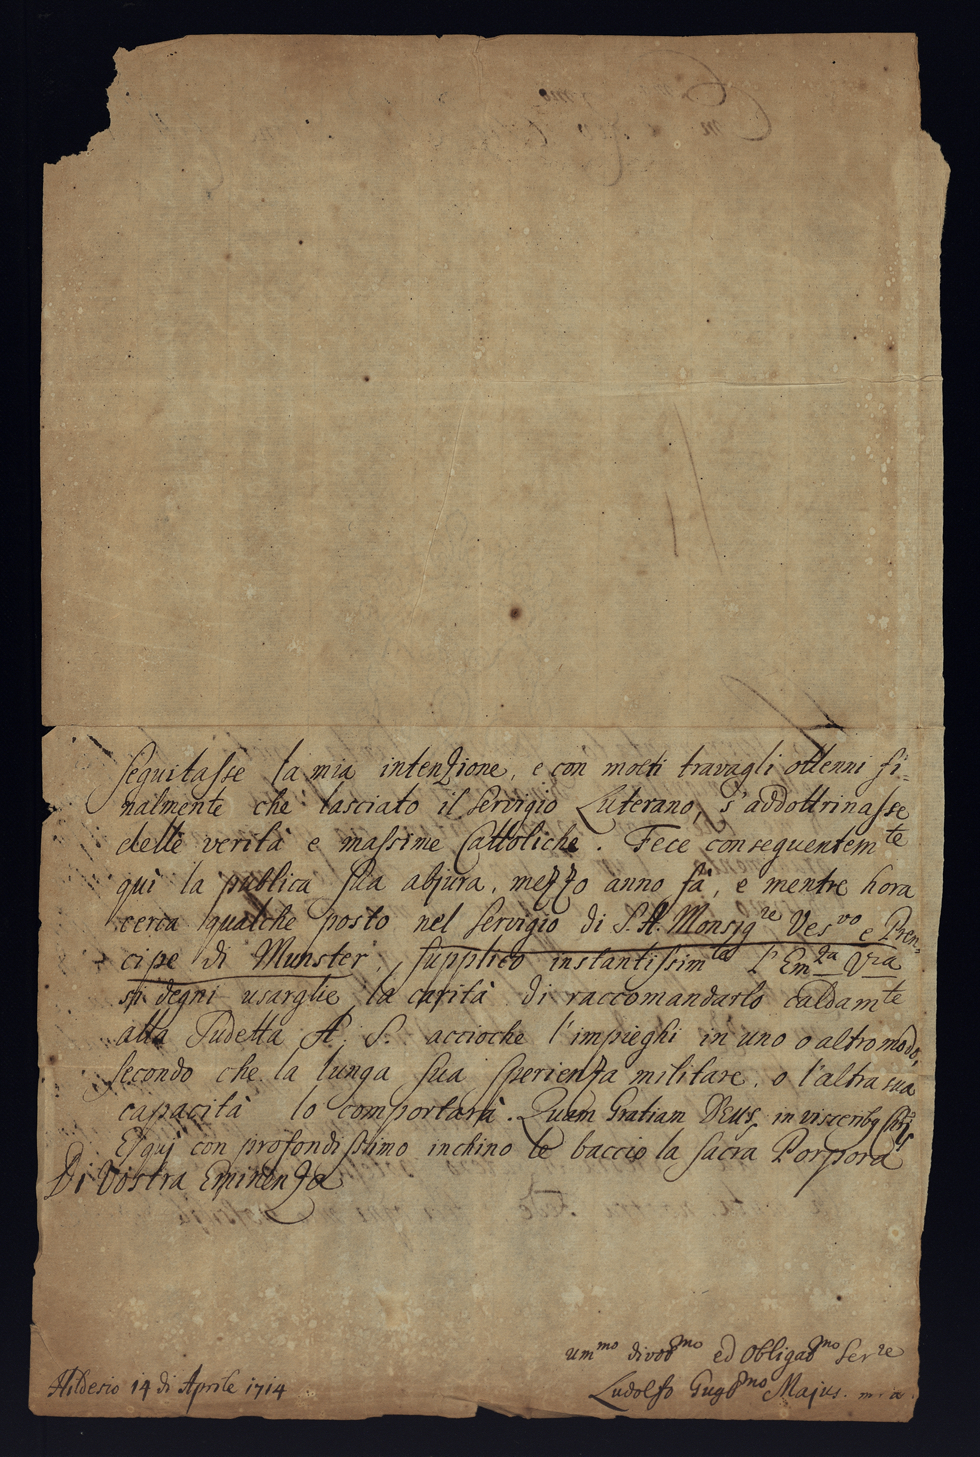 seguitasse la mia intenzione, e con molti travagli ottenni fi-
nalmente che lasciato il servigio Luterano, s'addottrinasse
delle verità e massime Cattoliche. Fece conseguentem.te
quì la publica sua abjura, mezzo anno fà, e mentre hora
cerca qualche posto nel servigio di S. A. Monsig.re Ves.vo e Pren-
cipe di Munster, supplico instantissim.te l'Em.za V.ra
si degni usarglie la carità di raccomandarlo caldam.te
alla Sudetta A. S. accioche l'impieghi in uno o altro modo,
secondo che la lunga sua sperienza militare, o l'altra sua
capacità lo comportarà. Quam Gratiam Deus, in
E quì con profondissimo inchino le baccio la sacra Porpora
Di Vostra Eminenza
um.mo divot.mo ed obligat.mo Ser.re
Hildesio 14 di Aprile 1714
Ludolfo Gugl.mo Majus. m. a.